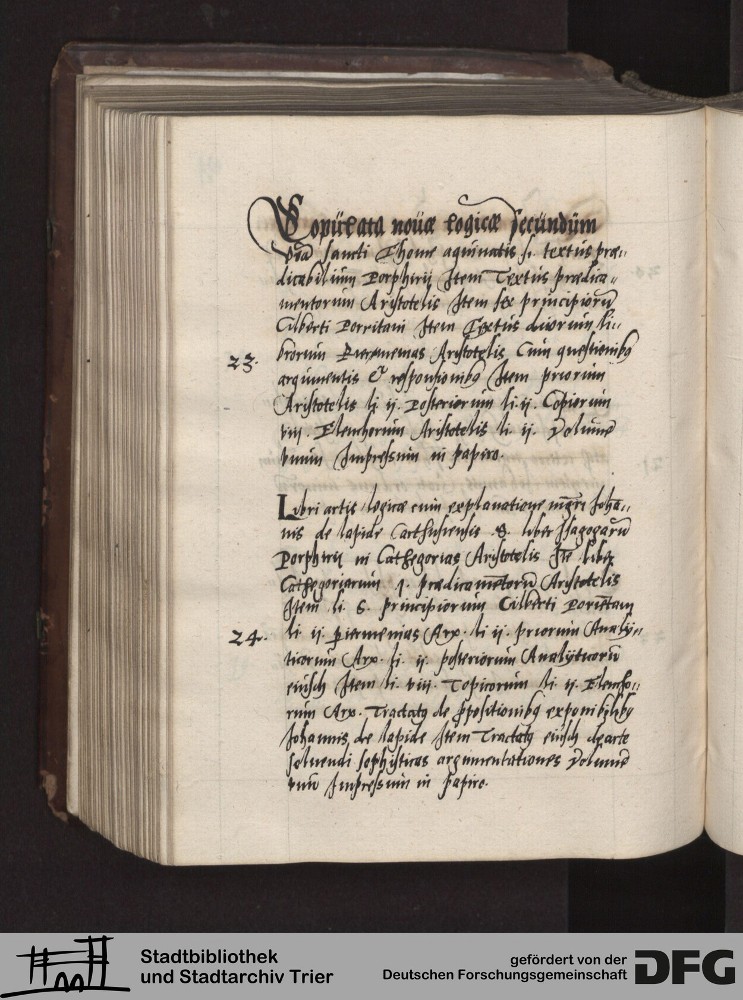 Copulata nouæ logicæ secundum
via sancti Thome aquinatis s. textus præ-
dicabilium Porphirij Item Textus prædica-
mentorum Aristotelis Item sex principiorū
Gilberti Porritani Item Textus duorum li-
23. brorum Pieremenias Aristotelis Cum questionibꝰ
argumentis & responsionibꝰ Item priorum
Aristotelis li ij. Posteriorum li. ij. Topicorum
viij. Elenchorum Aristotelis li. ij. Volumē
vnum Impressum in papiro.
Libri artis logicæ cum explanatione mgr̄i Joha-
nis de lapide Carthusiensis .S. liber Isagogarū
Porphirij in Cathegorias Aristotelis Itē liber
Cathegoriarum .j. prædicamētorū Aristotelis
Item li 6. principiorum Gilberti Poriētam
24. li ij. piermenias Arp. li ij. priorum Analÿ-
ticorum Arp. li ij. posteriorum Analÿticorū
eiusdē Item li. viij. Topicorum li ij. Elencho-
rum Arp. Tractatꝰ de ꝓpositionibꝰ exponibilibꝰ
Johannis de lapide Item Tractatꝰ eiusdē de arte
soluendi sophisticas argumentationes Volumē
vnū Impressum in papiro.
Stadtbibliothek
und Stadtarchiv Trier
gefördert von der
Deutschen Forschungsgemeinschaft
DFG